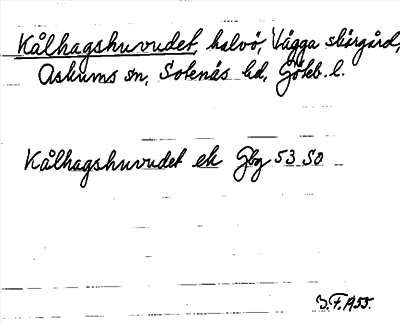 Kålhagshuvudet, halvö, Vägga skärgård,
Askums sn, Sotenäs hd, Göteb. l.
Kålhagshuvudet ek Gbg 53 SO
J.F. 1955.